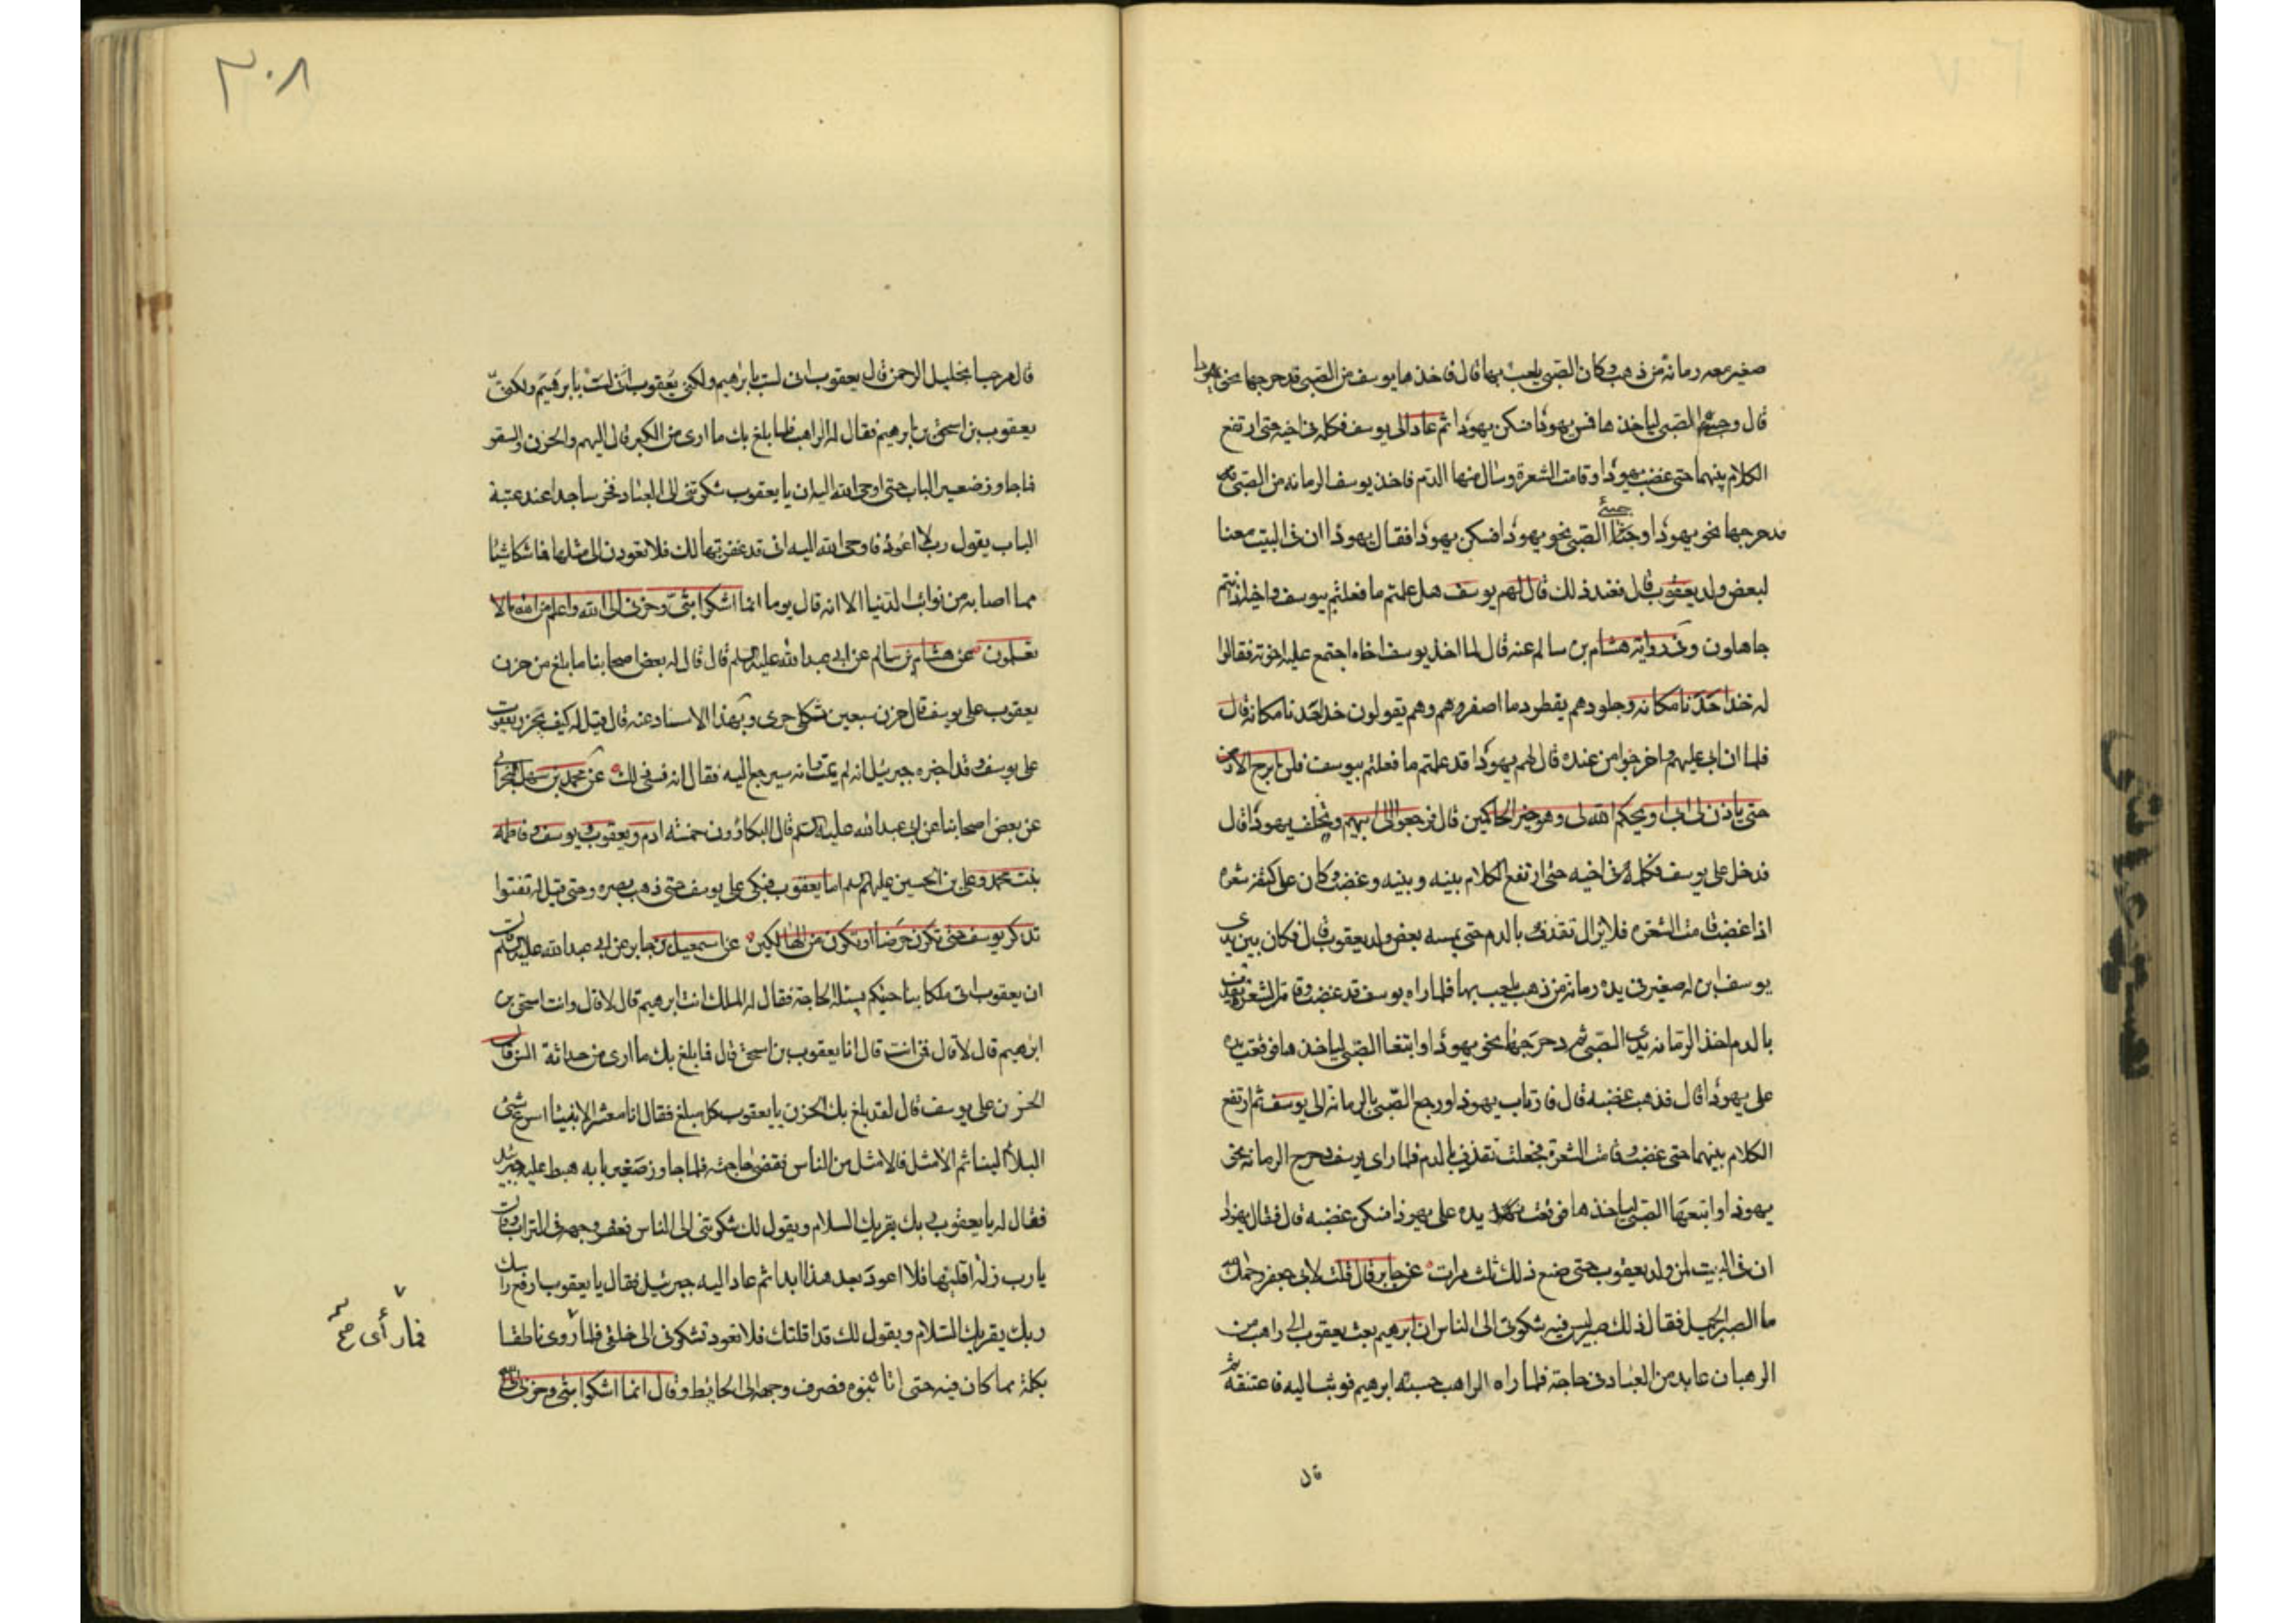 صغير معه رمانة من ذهب وكان الصبى يلعب بها قال فاخذها يوسف من الصبى فدحرجها نحو يهودا
قال وحبى الصبى لياخذها فمس يهودا فسكن يهودا ثم عاد الى يوسف فكلمه فى اخيه حتى ارتفع
الكلام بينهما حتى غضب يهودا وقامت الشعرة وسال منها الدم فاخذ يوسف الرمانه من الصبى
فدحرجها نحو يهودا وحثا الصبى نحو يهودا فسكن يهودا فقال يهودا ان فى البيت معنا
لبعض ولد يعقوب قال فعند ذلك قال لهم يوسف هل علمتم ما فعلتم بيوسف واخيه اذ انتم
جاهلون وفى رواية هشام بن سالم عنه قال لما اخذ يوسف اخاه اجتمع عليه اخوته فقالوا
له خذ احدنا مكانه وجلودهم يقطر دما اصفر وهم يقولون خذ احدنا مكانه قال
فلما ان ابى عليهم واخرجوا من عنده قال لهم يهودا قد علمتم ما فعلتم بيوسف فلن ابرح الارض
حتى ياذن لى ابى او يحكم الله لى وهو خير الحاكمين قال فرجعوا الى ابيهم وتخلف يهودا قال
فدخل على يوسف فكلمه فى اخيه حتى ارتفع الكلام بينه وبينه وغضب وكان على كتفه شعرة
اذا غضب قامت الشعره فلا يزال تقذف بالدم حتى يمسه بعض ولد يعقوب قال فكان بين يدى
يوسف ابن له صغير فى يده رمانة من ذهب يلعب بها فلما راه يوسف قد غضب وقامت الشعرة تقذف
بالدم اخذ الرمانه من يدى الصبى ثم دحرجها نحو يهودا واتبعا الصبى لياخذها فوقعت يده
على يهودا قال فذهب غضبه قال فارتاب يهودا ورجع الصبى بالرمانة الى يوسف ثم ارتفع
الكلام بينهما حتى غضب وقامت الشعرة فجعلت تقذف بالدم فلما راى يوسف دحرج الرمانة نحو
يهودا واتبعها الصبى لياخذها فوقعت يده على يهودا فسكن غضبه قال فقال يهودا
ان فى البيت لمن ولد يعقوب حتى صنع ذلك ثلث مرات عن جابر قال قلت لابى جعفر رحمك الله
ما الصبر الجميل فقال ذلك صبر ليس فيه شكوى الى الناس ان ابرهيم بعث يعقوب الى راهب من
الرهبان عابد من العباد فى حاجة فلما راه الراهب حسبه ابرهيم فوثب اليه فاعتنقه ثم
قال
٣٠٨
قال مرحبا بخليل الرحمن قال يعقوب انى لست بابرهيم ولكنى يعقوب
يعقوب بن اسحق بن ابرهيم فقال له الراهب فما بلغ بك ما ارى من الكبر قال الهم والحزن والسقم
فما جاوز صغير الباب حتى اوحى الله اليه ان يا يعقوب شكوتنى الى العباد فخر ساجدا عند عتبة
الباب يقول رب لا اعود فاوحى الله اليه انى قد غفرتها لك فلا تعودن الى مثلها فما شكا شيئا
مما اصابه من نوائب الدنيا الا انه قال يوما انما اشكوا بثى وحزنى الى الله واعلم من الله مالا
تعلمون عن هشام بن سالم عن ابى عبد الله عليه السلم قال قال له بعض اصحابنا ما بلغ من حزن
يعقوب على يوسف قال حزن سبعين ثكلى حرى وبهذا الاسناد عنه قال قيل له كيف يحزن يعقوب
على يوسف وقد اخبره جبرئيل انه لم يمت وانه سيرجع اليه فقال انه نسى ذلك عن محمد بن سهل البحرانى
عن بعض اصحابنا عن ابى عبد الله عليه السلم قال البكاؤون خمسة ادم ويعقوب ويوسف وفاطمه
بنت محمد وعلى بن الحسين عليهم السلم اما يعقوب فبكى على يوسف حتى ذهب بصره وحتى قيل له تفتوا
تذكر يوسف حتى تكون حرضا او تكون من الهالكين عن اسمعيل بن جابر عن ابى عبد الله عليه السلم قال
ان يعقوب اتى ملكا بناحيتكم يسئله الحاجة فقال له الملك انت ابرهيم قال لا قال وانت اسحق بن
ابرهيم قال لا قال فمن انت قال انا يعقوب بن اسحق قال فما بلغ بك ما ارى من حداثة السن قال
الحزن على يوسف قال لقد بلغ بك الحزن يا يعقوب كل مبلغ فقال انا معشر الانبياء اسرع شىء
البلاء الينا ثم الامثل فالامثل من الناس فقضى حاجته فلما جاوز صغير بابه هبط عليه جبرئيل
فقال له يا يعقوب ربك يقريك السلام ويقول لك شكوتنى الى الناس فعفر وجهه فى التراب وقال
يا رب زلة اقلنيها فلا اعود بعد هذا ابدا ثم عاد اليه جبرئيل فقال يا يعقوب ارفع راسك
ربك يقريك السلام ويقول لك قد اقلتك فلا تعود تشكونى الى خلقى فلما روى ناطقا
بكلمة مما كان فيه حتى اتاه بنوه فصرف وجهه الى الحائط وقال انما اشكوا بثى وحزنى الى الله
فما رأى صح